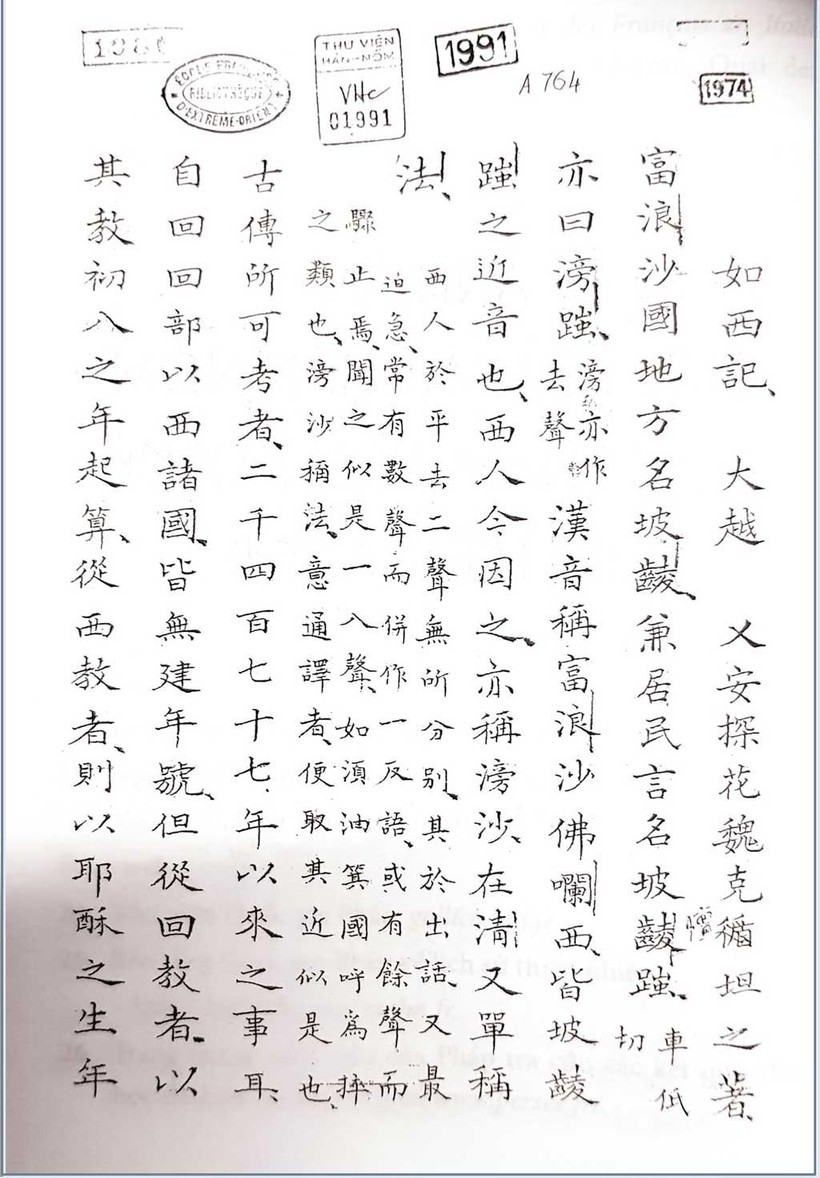 1991
1974
A 764
THƯ VIỆN
HÁN-NÔM
VHc
01991
ÉCOLE FRANÇAISE
BIBLIOTHÈQUE
D'EXTRÊME-ORIENT
如西記、 大越 乂安探花魏克循坦之著、
富浪沙國地方名坡、兼居民言名坡、車低切
亦曰滂、滂亦作去聲漢音稱富浪沙佛囒西、皆坡
之近音也、西人今因之、亦稱滂沙、在清又單稱
法、
西人於平去二聲無所分別、其於出話、又最
迫急、常有數聲而併作一反語、或有餘聲而
驟止焉、聞之似是一入聲、如湏油箕國呼爲捽
之類也、滂沙稱法、意通譯者、便取其近似是也、
古傳所可考者、二千四百七十七年以來之事耳、
自回回部以西諸國、皆無建年號、但從回教者、以
其教初入之年起算、從西教者、則以耶酥之生年